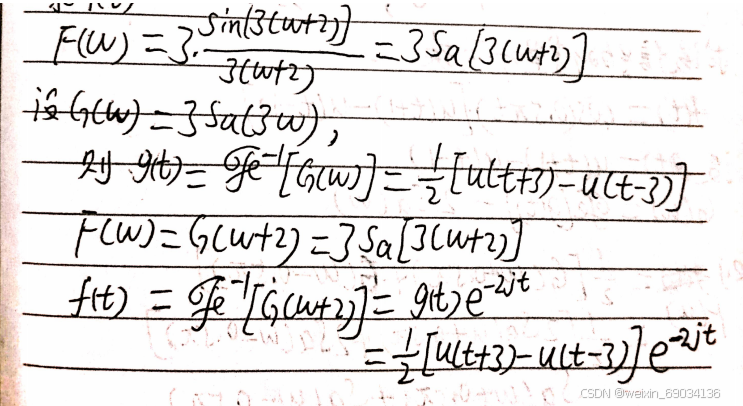 F(ω) = 3·sin[3(ω+2)]/3(ω+2) = 3Sa[3(ω+2)]
设G(ω) = 3Sa(3ω),
则 g(t) = ℱ⁻¹[G(ω)] = 1/2[u(t+3)-u(t-3)]
F(ω) = G(ω+2) = 3Sa[3(ω+2)]
f(t) = ℱ⁻¹[G(ω+2)] = g(t)e^-2jt
= 1/2[u(t+3)-u(t-3)]e^-2jt
CSDN @weixin_69034136